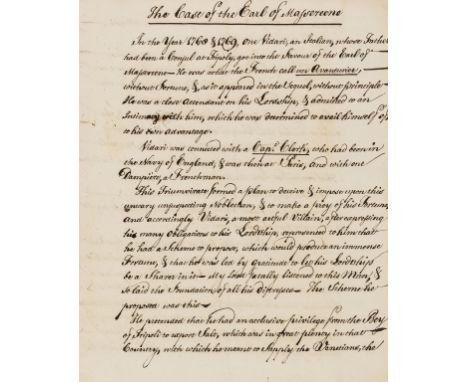 The Case of the Earl of Massereene
In the Year 1768 & 1769, One Vidari, an Italian, whose Father
had been a Consul at Tripoly, got into the Favour of the Earl of
Massareen — He was what the French call un Avanturier,
without Fortune, &, as it appeared in the Sequel, without principle
He was a close Attendant on his Lordship, & admitted to an
Intimacy with him, which he was determined to avail himself of
to his own advantage.
Vidari was connected with a Capt. Clark, who had been in
the Navy of England, & was then at Paris, and with one
Dampiere, a Frenchman.
This Triumvirate formed a plan to deceive & impose upon this
unwary unsuspecting Nobleman, & to make a prey of his Fortune,
and accordingly Vidari, a most artful Villain, after expressing
his many Obligations to his Lordship, represented to him that
he had a Scheme to propose, which would produce an immense
Fortune, & that he was led by Gratitude to let his Lordship
be a Sharer in it — My Lord fatally listened to this Man, &
so laid the Foundation of all his Distresses — The Scheme he
proposed was this —
He pretended that he had an exclusive privilege from the Bey
of Tripoli to export Salt, which was in great plenty in that
Country, with which he meant to supply the Venetians, the